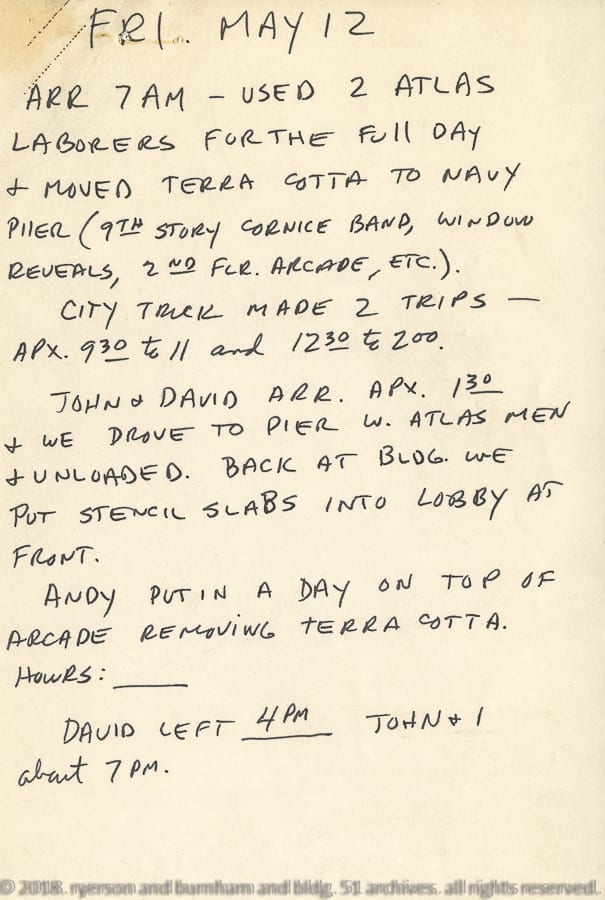 FRI. MAY 12
ARR 7 AM – USED 2 ATLAS
LABORERS FOR THE FUll DAY
& MOVED TERRA COTTA TO NAVY
PIIER (9TH STORY CORNICE BAND, WINDOW
REVEALS, 2ND FLR. ARCADE, ETC.).
CITY TRUCK MADE 2 TRIPS —
APX. 930 to 11 and 1230 to 200.
JOHN & DAVID ARR. APX. 130
& WE DROVE TO PIER W. ATLAS MEN
& UNLOADED. BACK AT BLDG. WE
PUT STENCIL SLABS INTO LOBBY AT
FRONT.
ANDY PUT IN A DAY ON TOP OF
ARCADE REMOVING TERRA COTTA.
HOURS: ____
DAVID LEFT 4 PM JOHN & I
about 7 PM.
© 2018. ryerson and burnham and bldg. 51 archives. all rights reserved.